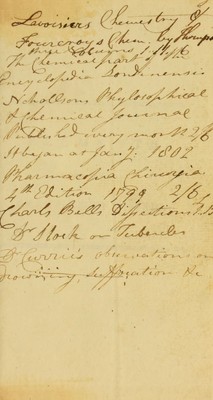 Lavoisiers Chemestry 8/
Fourcroys Chem. by Thompson
three Volumes
The Chemical part of the
Encyclopedia Londinensis
Nicholsons Phylosophical
& Chemical Journal
Published every month 2/6
It began at Jany. 1802
Pharmacopia Chirurgia.
4th Edition 1799 2/6
Charls Bells Disections
Dr Stock on Tubercles
Dr Currie's observations on
Drowning, Suffocation &c